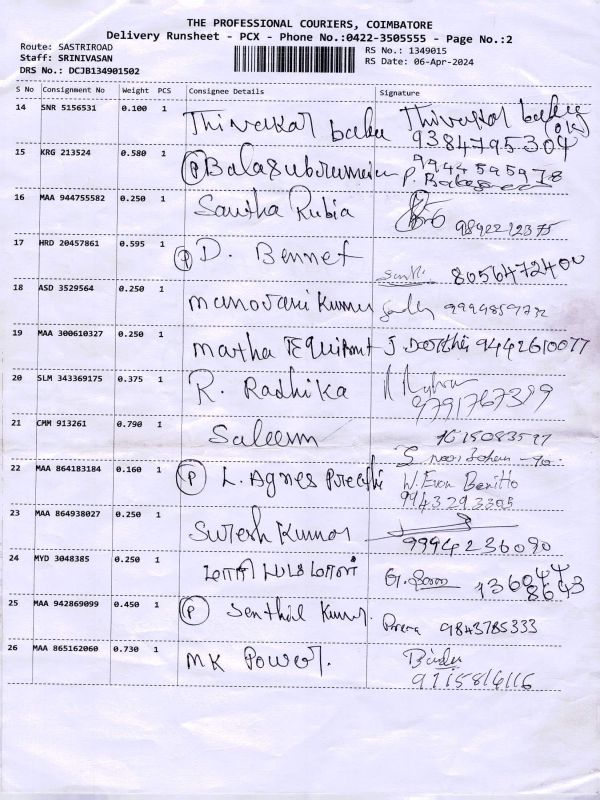 THE PROFESSIONAL COURIERS, COIMBATORE
Delivery Runsheet - PCX - Phone No.:0422-3505555 - Page No.:2
Route: SASTRIROAD
RS No.: 1349015
Staff: SRINIVASAN
RS Date: 06-Apr-2024
DRS No.: DCJB134901502
S No Consignment No Weight PCS Consignee Details Signature
14 SNR 5156531 0.100 1 Thivakar babu Thivakar babu
9384795304
15 KRG 213524 0.580 1 (P) Balasubramani 9944595978
P. Bala
16 MAA 944755582 0.250 1 Santha Rubia 9892212375
17 HRD 20457861 0.595 1 (P) D. Bennet
8056472400
18 ASD 3529564 0.250 1 manovani Kumar 9994859732
19 MAA 300610327 0.250 1 martha J 9442610077
20 SLM 343369175 0.375 1 R. Radhika
9791767399
21 CMM 913261 0.790 1 Saleem
22 MAA 864183184 0.160 1 (P) L. Agnes Preethi W. Evan Benitto
9943293305
23 MAA 864938027 0.250 1 Suresh Kumar
9994236090
24 MYD 3048385 0.250 1
25 MAA 942869099 0.450 1 (P) Senthil Kumar. Prema 9843785333
26 MAA 865162060 0.730 1 MK Power.
9715816116